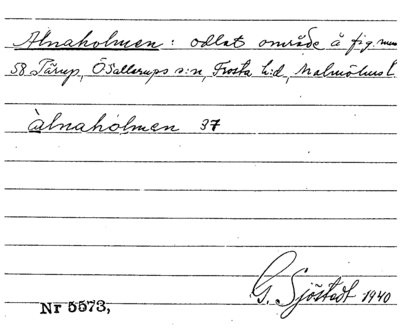 Alnaholmen: odlat område å fig. nus
58 Tårup, Ö Sallerups s:n, Frosta h:d, Malmöhus l.
àlnahòlmen 37
G. Sjöstedt 1940
Nr 5573,